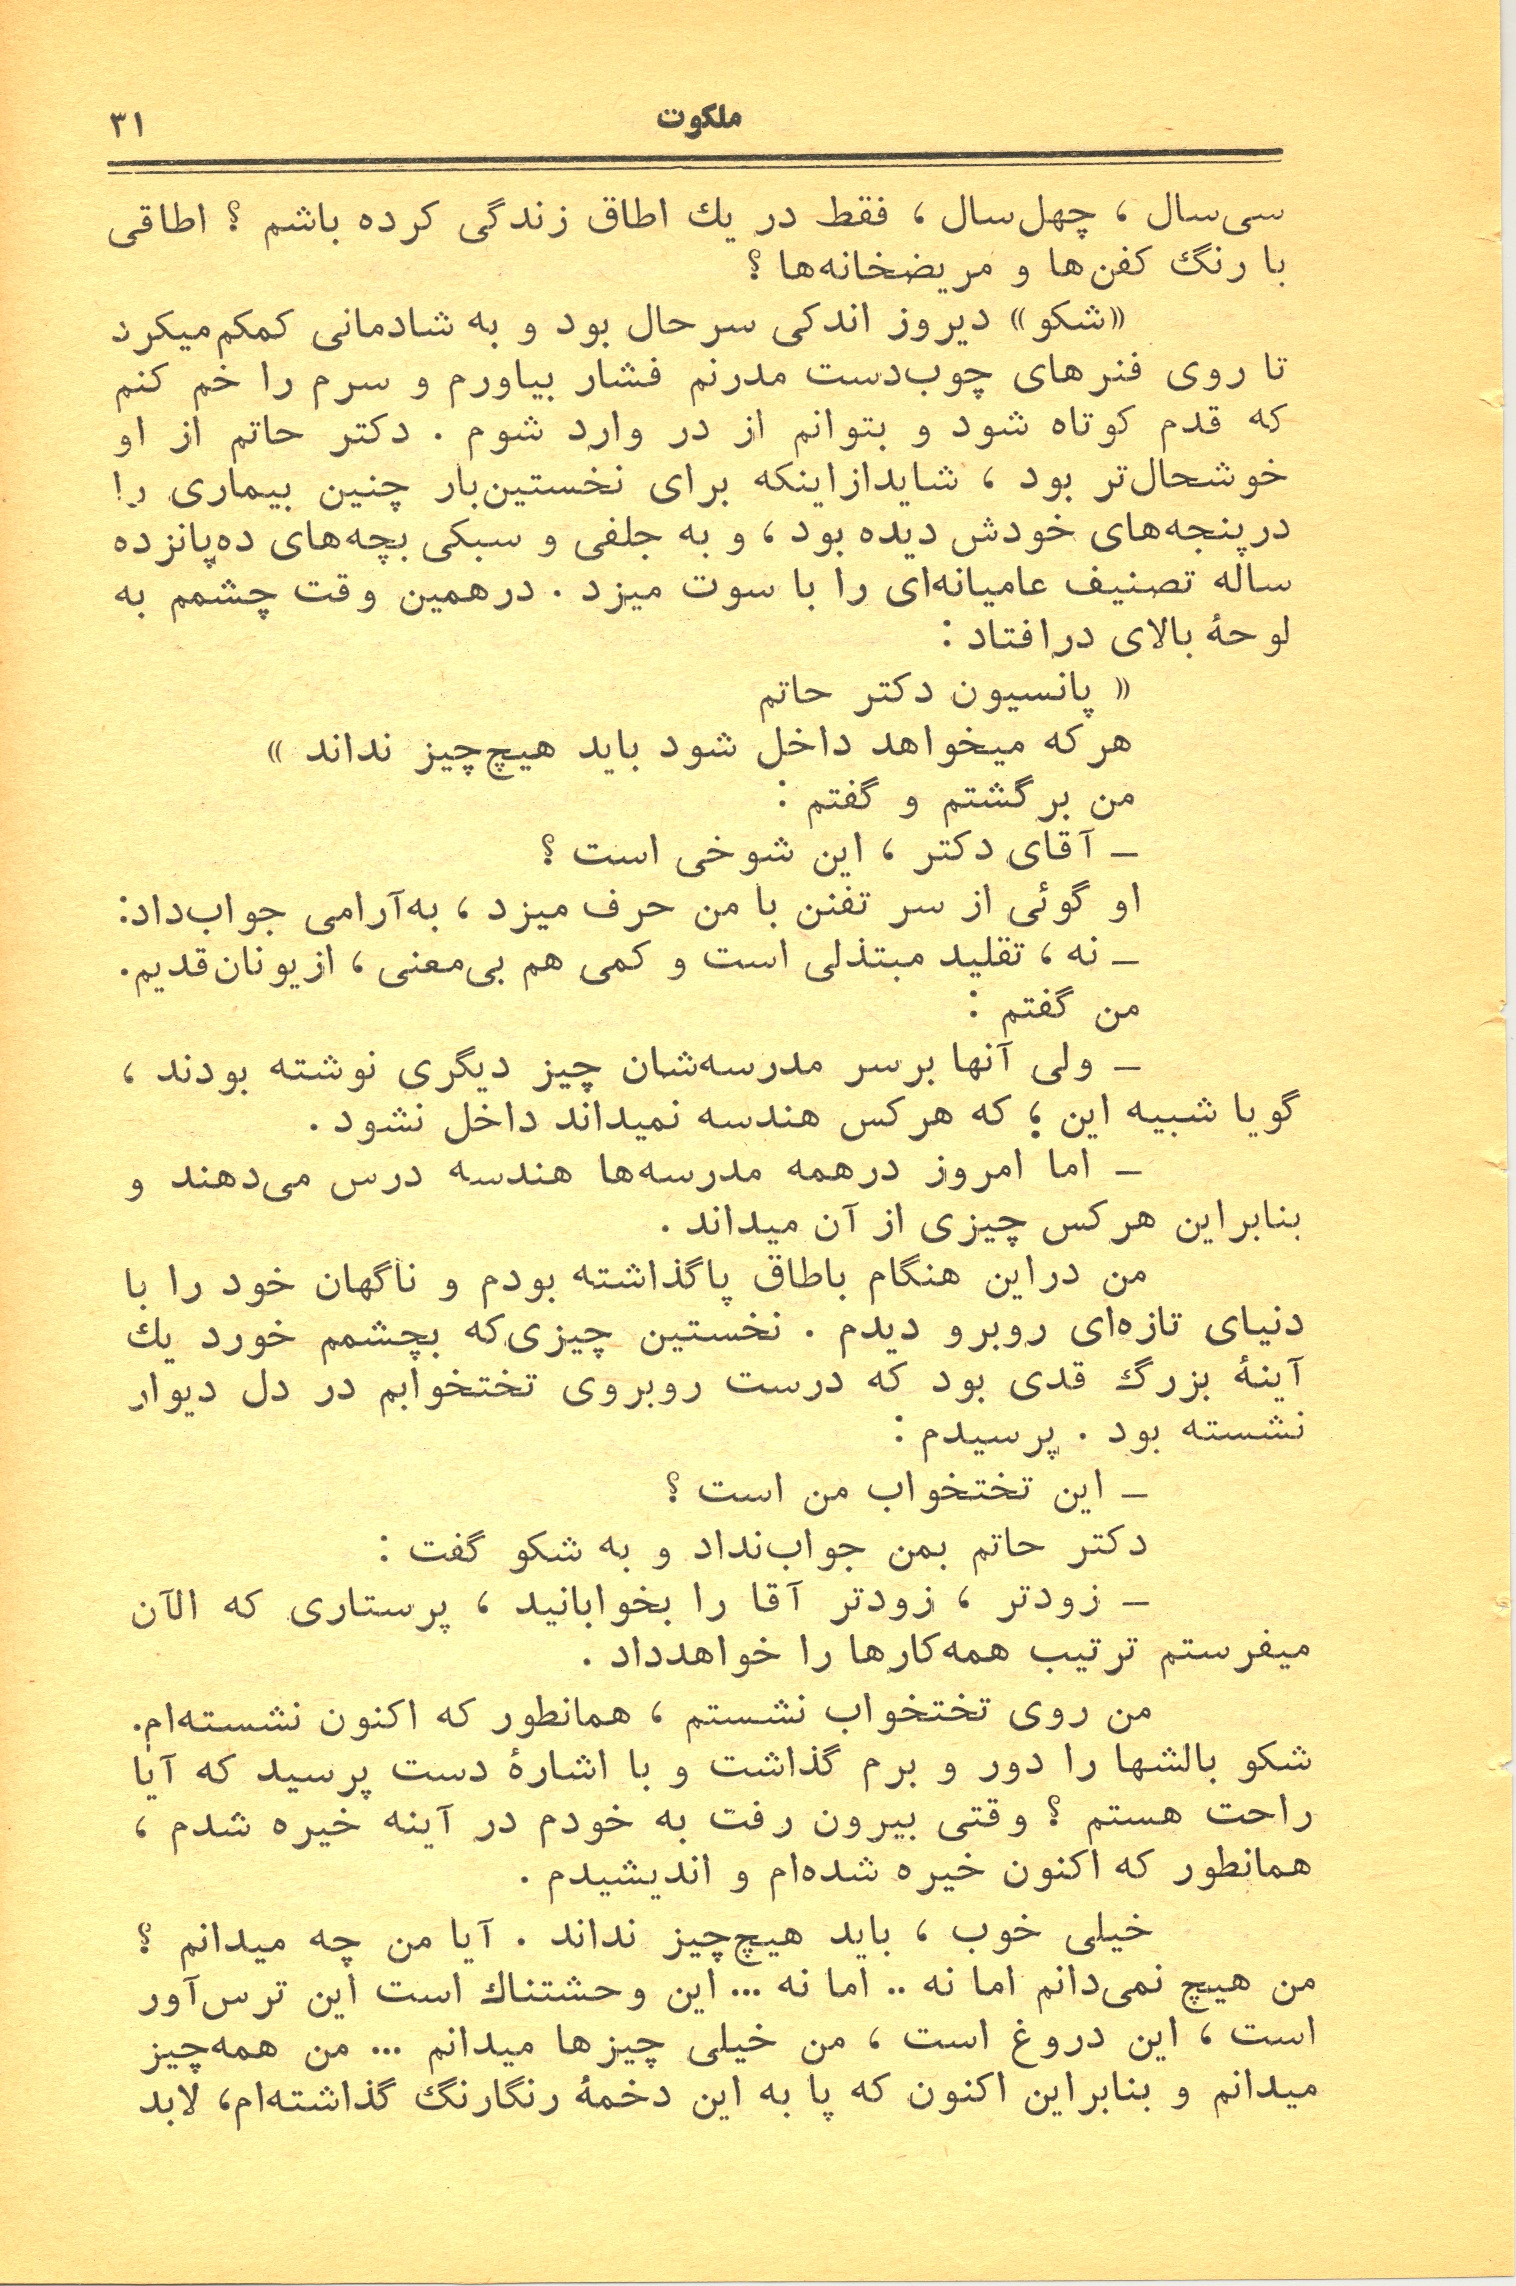 ملکوت
۳۱
سی‌سال ، چهل‌سال ، فقط در یك اطاق زندگی کرده باشم ؟ اطاقی
با رنگ کفن‌ها و مریضخانه‌ها ؟
«شکو» دیروز اندکی سرحال بود و به شادمانی کمکم میکرد
تا روی فنرهای چوب‌دست مدرنم فشار بیاورم و سرم را خم کنم
که قدم کوتاه شود و بتوانم از در وارد شوم . دکتر حاتم از او
خوشحال‌تر بود ، شاید از اینکه برای نخستین‌بار چنین بیماری را
در پنجه‌های خودش دیده بود ، و به جلفی و سبکی بچه‌های ده‌پانزده
ساله تصنیف عامیانه‌ای را با سوت میزد . درهمین وقت چشمم به
لوحهٔ بالای درافتاد :
« پانسیون دکتر حاتم
هرکه میخواهد داخل شود باید هیچ‌چیز نداند »
من برگشتم و گفتم :
ـ آقای دکتر ، این شوخی است ؟
او گوئی از سر تفنن با من حرف میزد ، به‌آرامی جواب‌داد:
ـ نه ، تقلید مبتذلی است و کمی هم بی‌معنی ، از یونان‌قدیم.
من گفتم :
ـ ولی آنها برسر مدرسه‌شان چیز دیگری نوشته بودند ،
گویا شبیه این ؛ که هرکس هندسه نمیداند داخل نشود .
ـ اما امروز درهمه مدرسه‌ها هندسه درس می‌دهند و
بنابراین هرکس چیزی از آن میداند .
من دراین هنگام باطاق پاگذاشته بودم و ناگهان خود را با
دنیای تازه‌ای روبرو دیدم . نخستین چیزی‌که بچشمم خورد یك
آینهٔ بزرگ قدی بود که درست روبروی تختخوابم در دل دیوار
نشسته بود . پرسیدم :
ـ این تختخواب من است ؟
دکتر حاتم بمن جواب‌نداد و به شکو گفت :
ـ زودتر ، زودتر آقا را بخوابانید ، پرستاری که الآن
میفرستم ترتیب همه‌کارها را خواهدداد .
من روی تختخواب نشستم ، همانطور که اکنون نشسته‌ام.
شکو بالشها را دور و برم گذاشت و با اشارهٔ دست پرسید که آیا
راحت هستم ؟ وقتی بیرون رفت به خودم در آینه خیره شدم ،
همانطور که اکنون خیره شده‌ام و اندیشیدم .
خیلی خوب ، باید هیچ‌چیز نداند . آیا من چه میدانم ؟
من هیچ نمی‌دانم اما نه .. اما نه ... این وحشتناك است این ترس‌آور
است ، این دروغ است ، من خیلی چیزها میدانم ... من همه‌چیز
میدانم و بنابراین اکنون که پا به این دخمهٔ رنگارنگ گذاشته‌ام، لابد